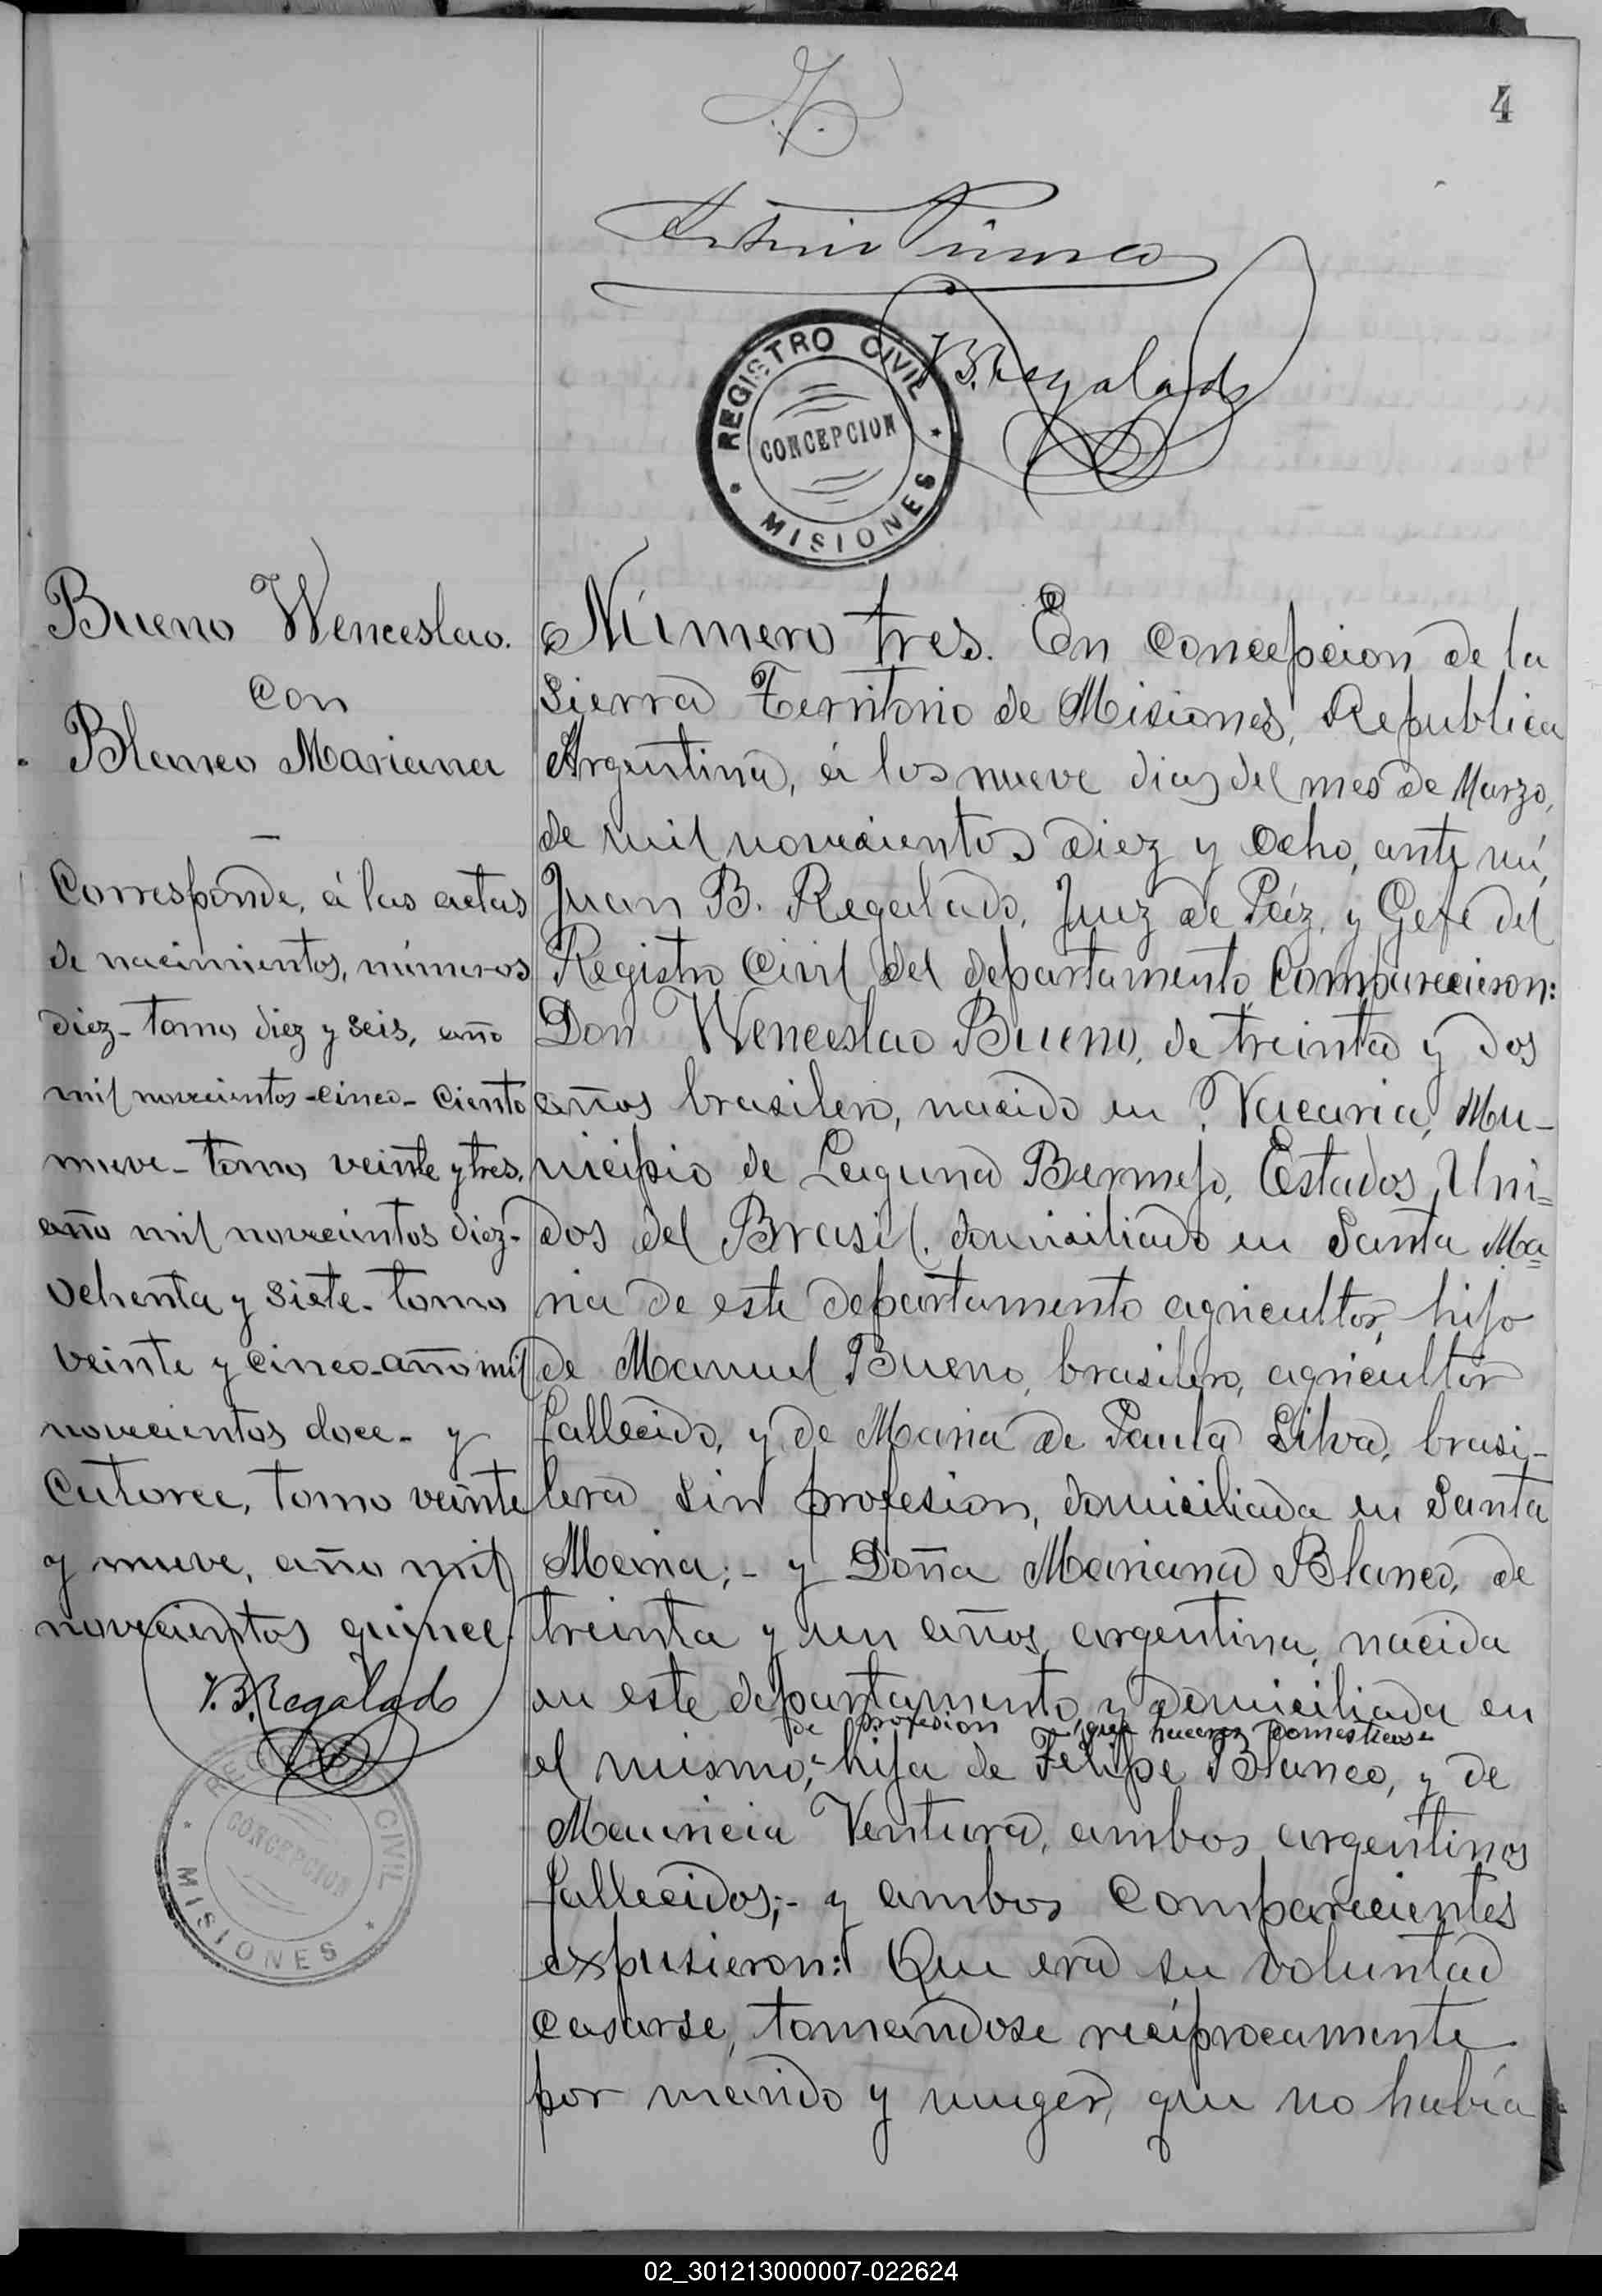 4
REGISTRO CIVIL
CONCEPCION
MISIONES
J.B. Regalado
Bueno Wenceslao.
con
Blanco Mariana
Corresponde, á las actas
de nacimientos, números
diez- tomo diez y seis, año
mil novecientos -cinco- ciento
nueve- tomo veinte y tres,
año mil novecientos diez-
ochenta y siete- tomo
veinte y cinco- año mil
novecientos doce- y
catorce, tomo veinte
y nueve, año mil
novecientos quince.
J.B. Regalado
REGISTRO CIVIL
CONCEPCION
MISIONES
Número tres. En Concepcion de la
Sierra Territorio de Misiones, Republica
Argentina, á los nueve dias del mes de Marzo,
de mil novecientos diez y ocho, ante mí,
Juan B. Regalado, Juez de Páz, y Gefe del
Registro Civil del departamento Comparecieron:
Don Wenceslao Bueno, de treinta y dos
años brasilero, nacido en Vacaria, Mu-
nicipio de Laguna Bermejo, Estados Uni=
dos del Brasil, domiciliado en Santa Ma=
ria de este departamento agricultor, hijo
de Manuel Bueno, brasilero, agricultor
fallecido, y de Maria de Paula Silva, brasi-
lera sin profesion, domiciliada en Santa
Maria;- y Doña Mariana Blanco, de
treinta y un años, argentina, nacida
en este departamento y domiciliada en
de profesion que haceres domesticos
el mismo,- hija de Felipe Blanco, y de
Mauricia Ventura, ambos argentinos
fallecidos;- y ambos comparecientes
expusieron: Que era su voluntad
casarse, tomandose reciprocamente
por marido y muger, que no había
02_301213000007-022624